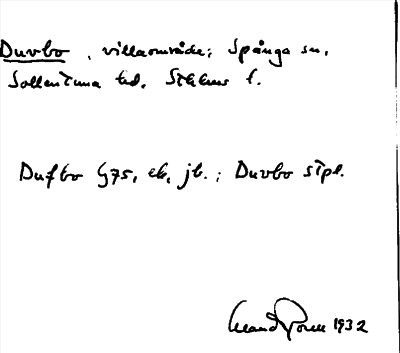 Duvbo, villaområde; Spånga sn.
Sollentuna hd. Sthlms l.
Dufbo G75, ek, jb.; Duvbo stpl.
1932